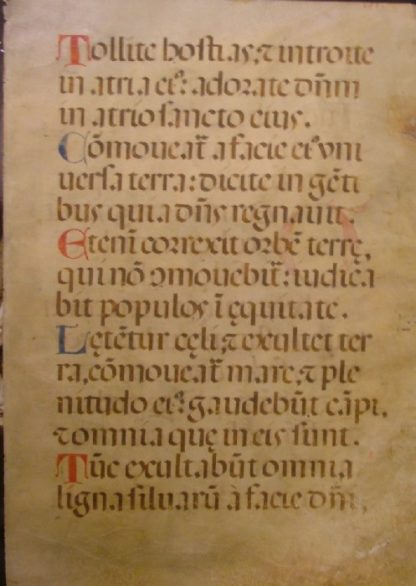 Tollite hostias, ⁊ introite
in atria eiꝰ: adorate dn̄m
in atrio sancto eius.
Cōmoueat᷑ a facie eiꝰ vni
uersa terra: dicite in gēti
bus quia dn̄s regnauit.
Etenī correxit orbē terrę,
qui nō ꝯmouebit᷑: iudica
bit populos ī ęquitate.
Lętētur cęli, ⁊ exultet ter
ra, cōmoueat᷑ mare, ⁊ ple
nitudo eiꝰ: gaudebūt cāpi,
⁊ omnia quę in eis sunt.
Tūc exultabūt omnia
ligna siluarū à facie dn̄i,